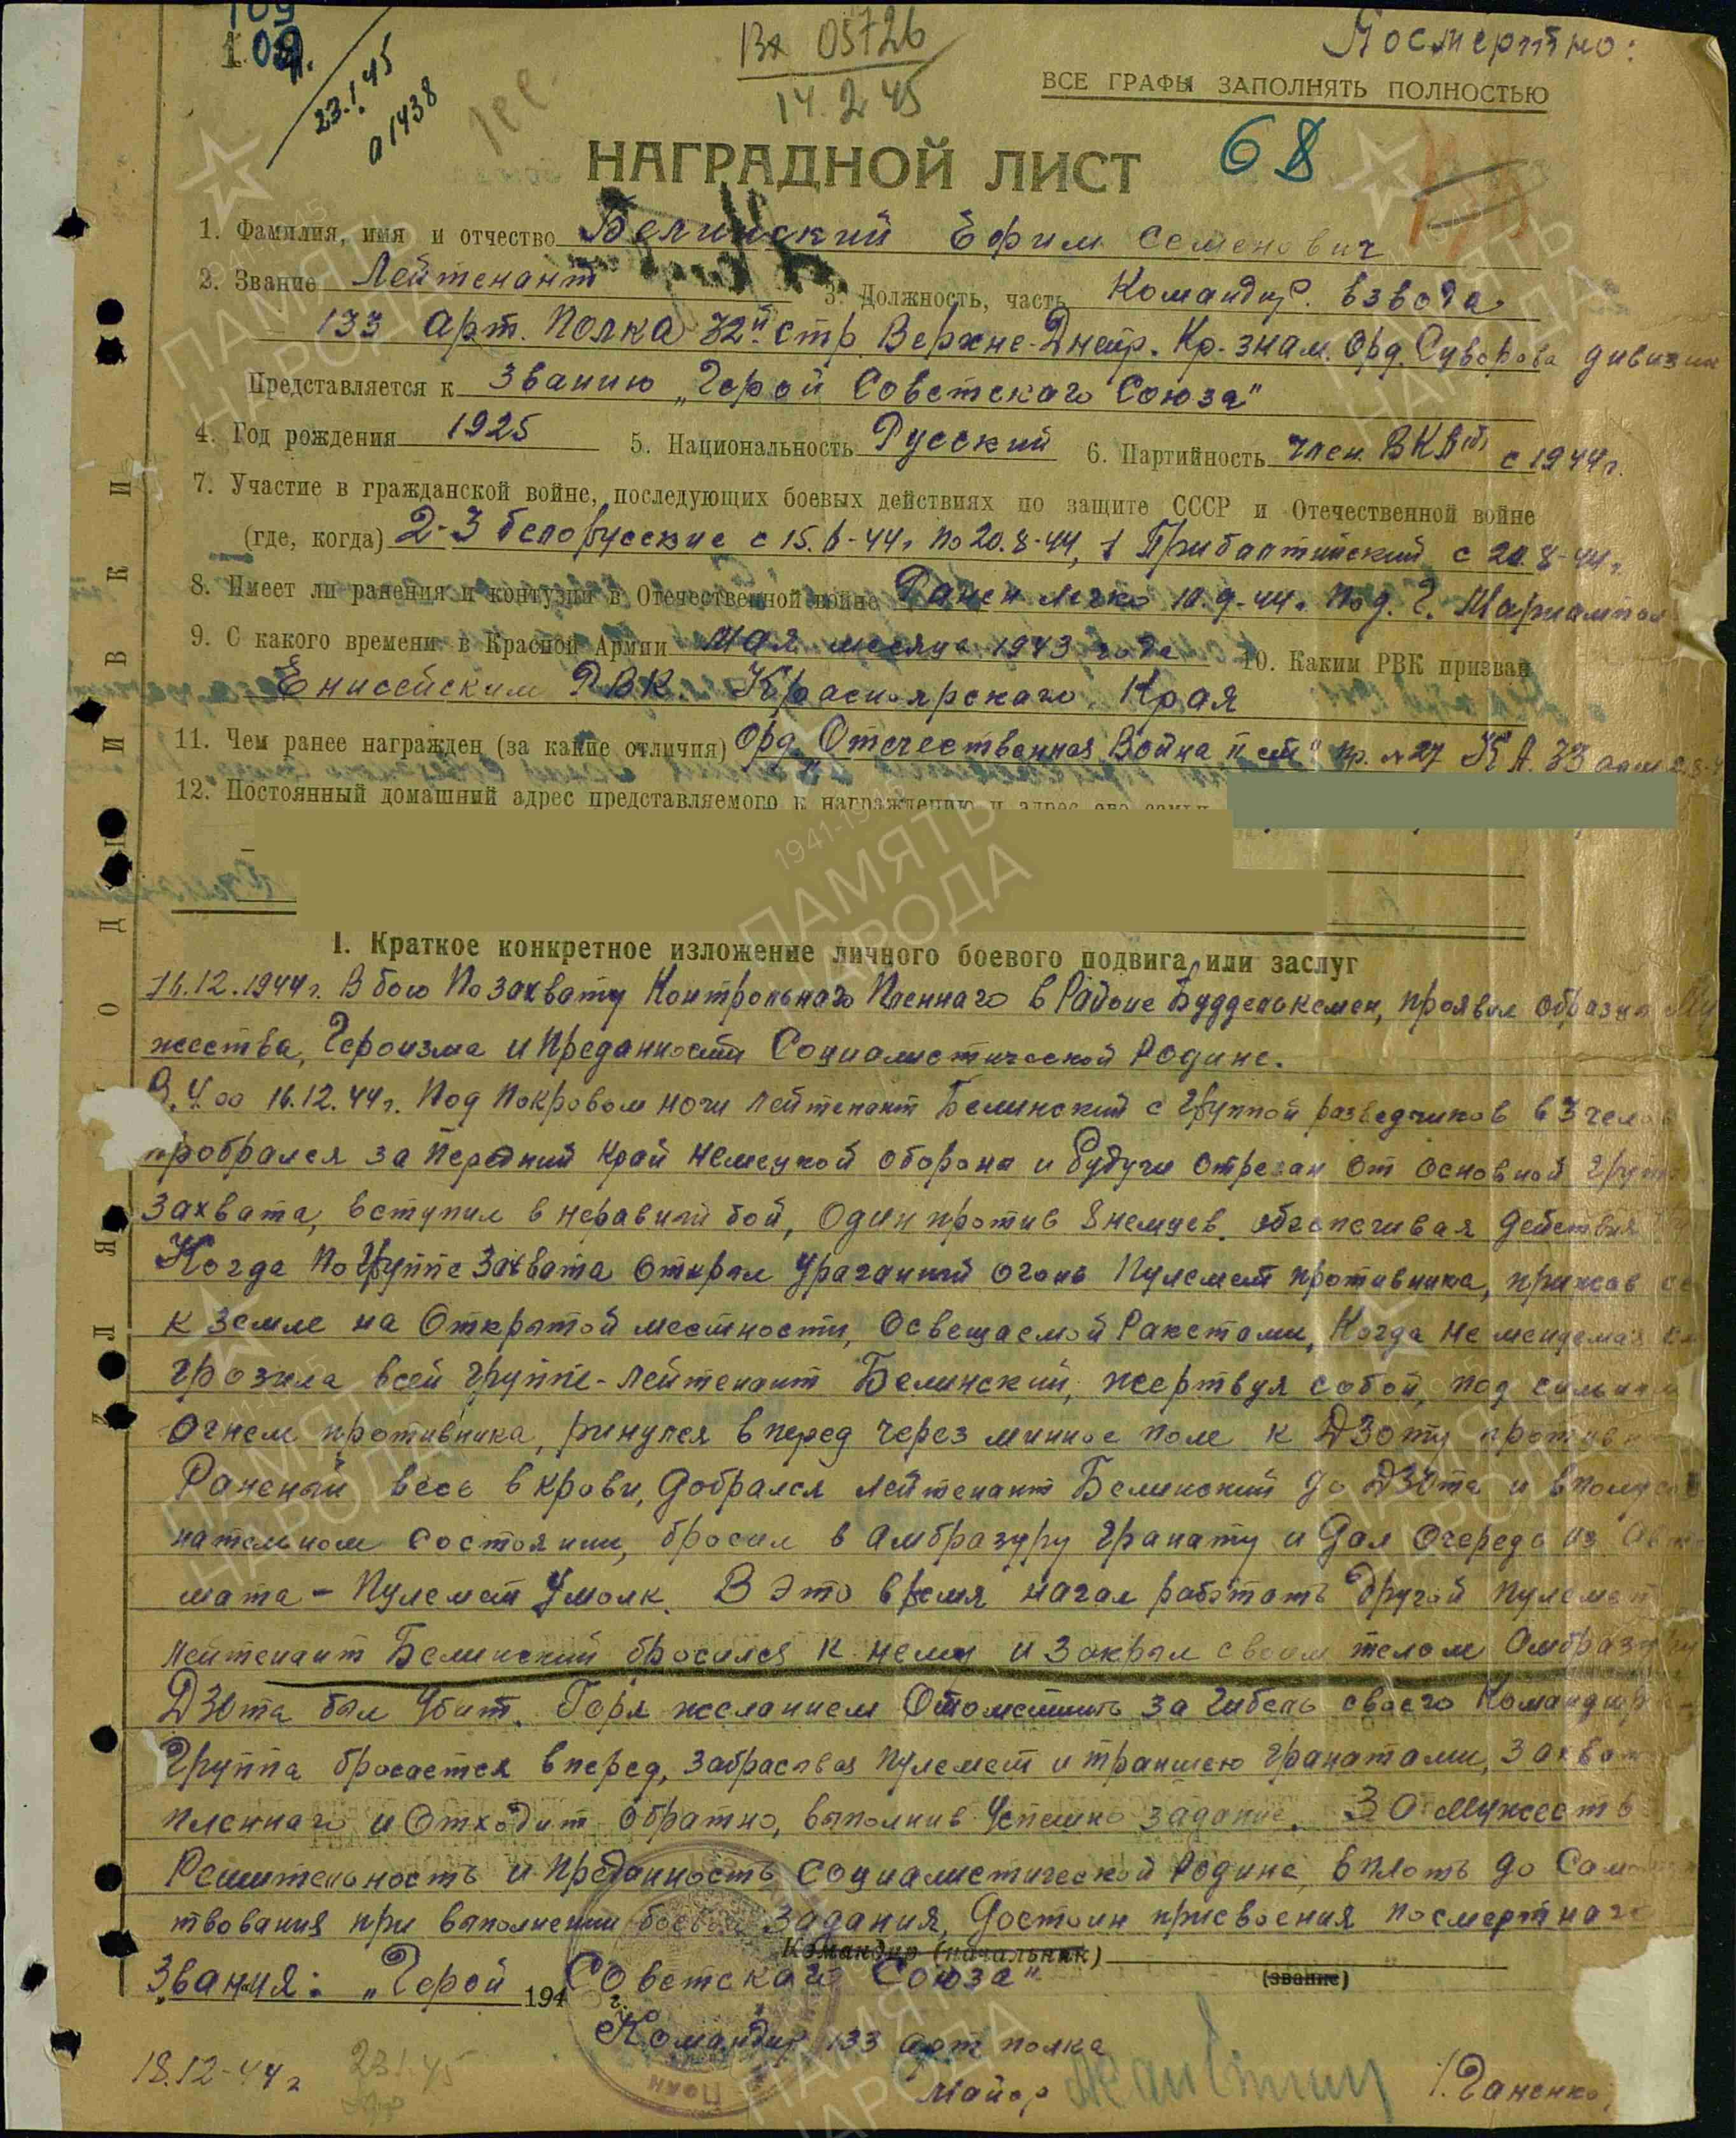 109
1.09.
23.1.45
01438
Вх 05726
14.2.45
Посмертно:
ВСЕ ГРАФЫ ЗАПОЛНЯТЬ ПОЛНОСТЬЮ
НАГРАДНОЙ ЛИСТ
68
1. Фамилия, имя и отчество Белинский Ефим Семенович
2. Звание Лейтенант 3. Должность, часть Командир. взвода
133 Арт. Полка 32й Стр. Верхне-Днепр. Кр. знам. Орд. Суворова дивизии
Представляется к Званию „Герой Советскаго Союза"
4. Год рождения 1925 5. Национальность Русский 6. Партийность член ВКП(б) с 1944г.
7. Участие в гражданской войне, последующих боевых действиях по защите СССР и Отечественной войне
(где, когда) 2-3 белорусские с 15.6-44г по 20.8-44, 1 Прибалтийский с 20.8-44г.
8. Имеет ли ранения и контузии в Отечественной войне Ранен легко 10.9-44г. под. г. Мариамполь
9. С какого времени в Красной Армии Мая месяца 1943 года 10. Каким РВК призван
Енисейским РВК. Красноярскаго Края
11. Чем ранее награжден (за какие отличия) Орд. „Отечественная Война II ст" пр. №27 КА. 33
12. Постоянный домашний адрес представляемого к награждению и адрес его семьи
1. Краткое конкретное изложение личного боевого подвига или заслуг
16.12.1944г. В бою По захвату Контрольнаго Пленнаго в Районе Буддельκемен, проявил образец Му
жества, Героизма и Преданности Социалистической Родине.
В 4.00 16.12.44г. Под Покровом ночи лейтенант Белинский с группой разведчиков в 3 челов
пробрался за Передний край немецкой обороны и будучи отрезан от основной групп
захвата, вступил в неравный бой, один против 8 немцев. обеспечивая действия
Когда по группе Захвата открыл ураганный огонь пулемет противника, прижав
к земле на открытой местности, освещаемой Ракетами, Когда неменуемая
грозила всей группе - лейтенант Белинский, жертвуя собой, под сильным
огнем противника, ринулся вперед через минное поле к ДЗоту против
Раненый весь в крови, добрался лейтенант Белинский до ДЗота и вполусоз
нательном состоянии, бросил в амбразуру гранату и Дал очередь из Авто
мата - Пулемет Умолк. В это время начал работать другой пулемет
лейтенант Белинский бросился к нему и закрыл своим телом Амбразуру
ДЗота был Убит. Горя желанием Отомстить за Гибель своего Командира-
Группа бросается вперед, забрасывая пулемет и траншею гранатами, захват
пленнаго и Отходит обратно, выполнив Успешно задание. За Мужеств
Решительность и преданность социалистической Родине, вплоть до Само
твования при выполнении боевого задания, Достоин присвоения посмертнаго
Командир (начальник)
(звание)
Звания: „Герой Советскаго Союза"
194 г.
Командир 133 арт полка
Майор /.Ганенко/
18.12-44г
23.1.45
К ЛЯ ПОДШИВКИ
ПАМЯТЬ НАРОДА
1941-1945